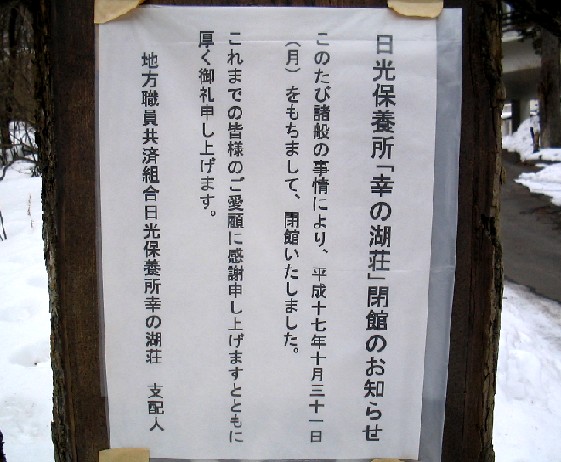 日光保養所「幸の湖荘」閉館のお知らせ
このたび諸般の事情により、平成十七年十月三十一日
（月）をもちまして、閉館いたしました。
これまでの皆様のご愛顧に感謝申し上げますとともに
厚く御礼申し上げます。
地方職員共済組合日光保養所幸の湖荘　支配人